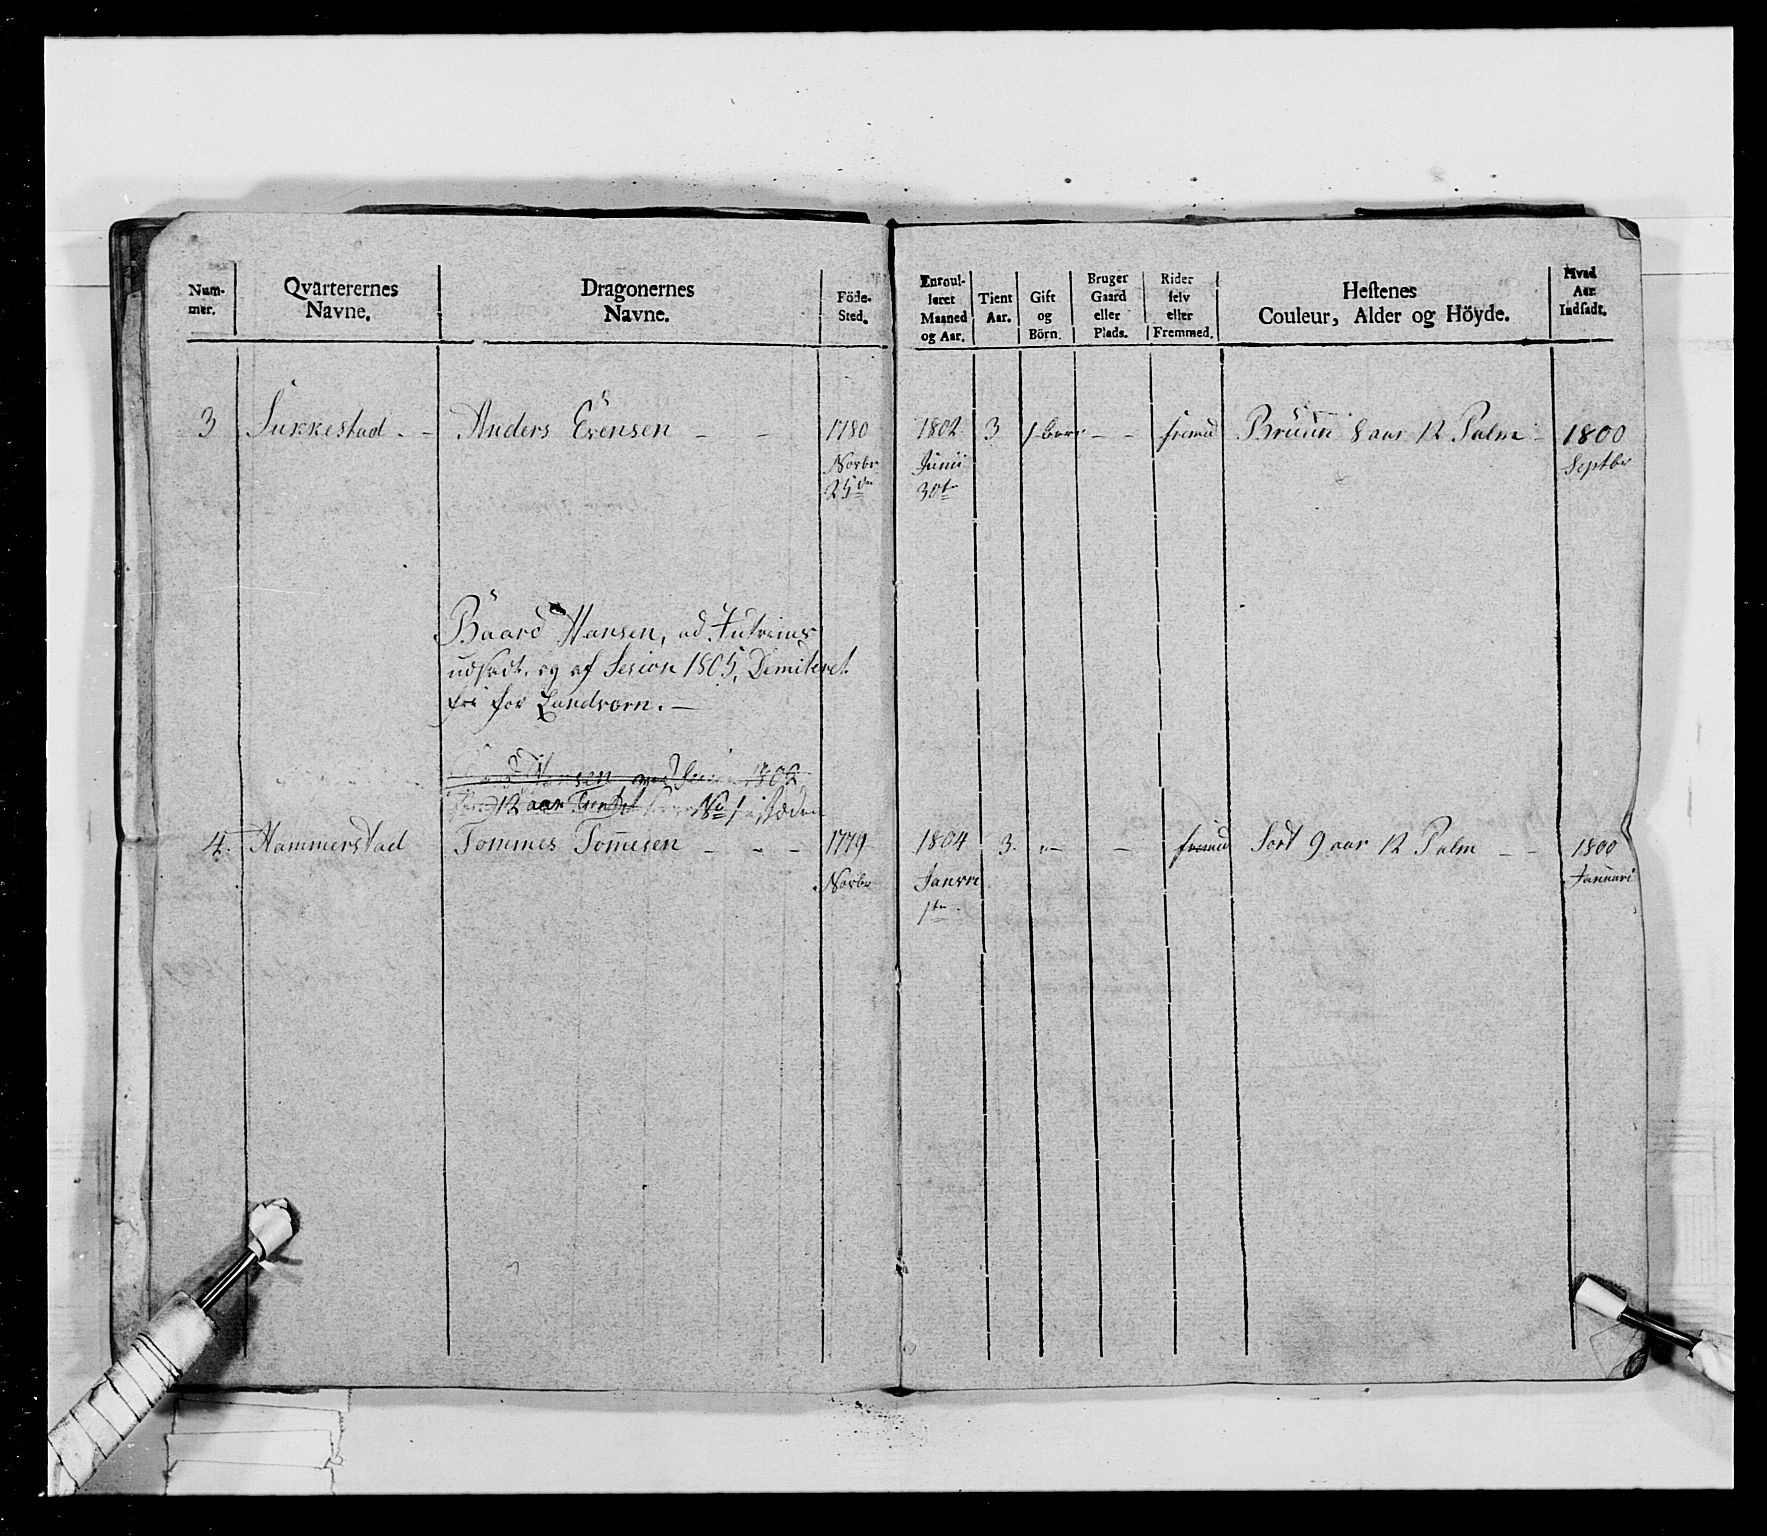 Num-
mer.
Qvarterernes
Navne.
Dragonernes
Navne.
Föde-
Sted.
Enroul-
leret
Maaned
og Aar.
Tient
Aar.
Gift
og
Börn.
Bruger
Gaard
eller
Plads.
Rider
selv
eller
Fremmed.
Hestenes
Couleur, Alder og Höyde.
Hvad
Aar
Indsadt.
3 Sukkestad - - Anders Evensen - - 1780 1802 3 1 barn - - fremd Bruun 8 aar 12 Palm - 1800
Novbr Junii Septbr
25de 30te
Baard Hansen, ad Intrims
udsadt, og af Sesion 1805, Demiteret
fri for Landvorn. -
Hansen 1802
12 aar No 1
4. Hammerstad Tommes Tommesen - - - 1779 1804 3. - - fremd Sort 9 aar 12 Palm - - 1800
Novbr Janvri Januari
1te